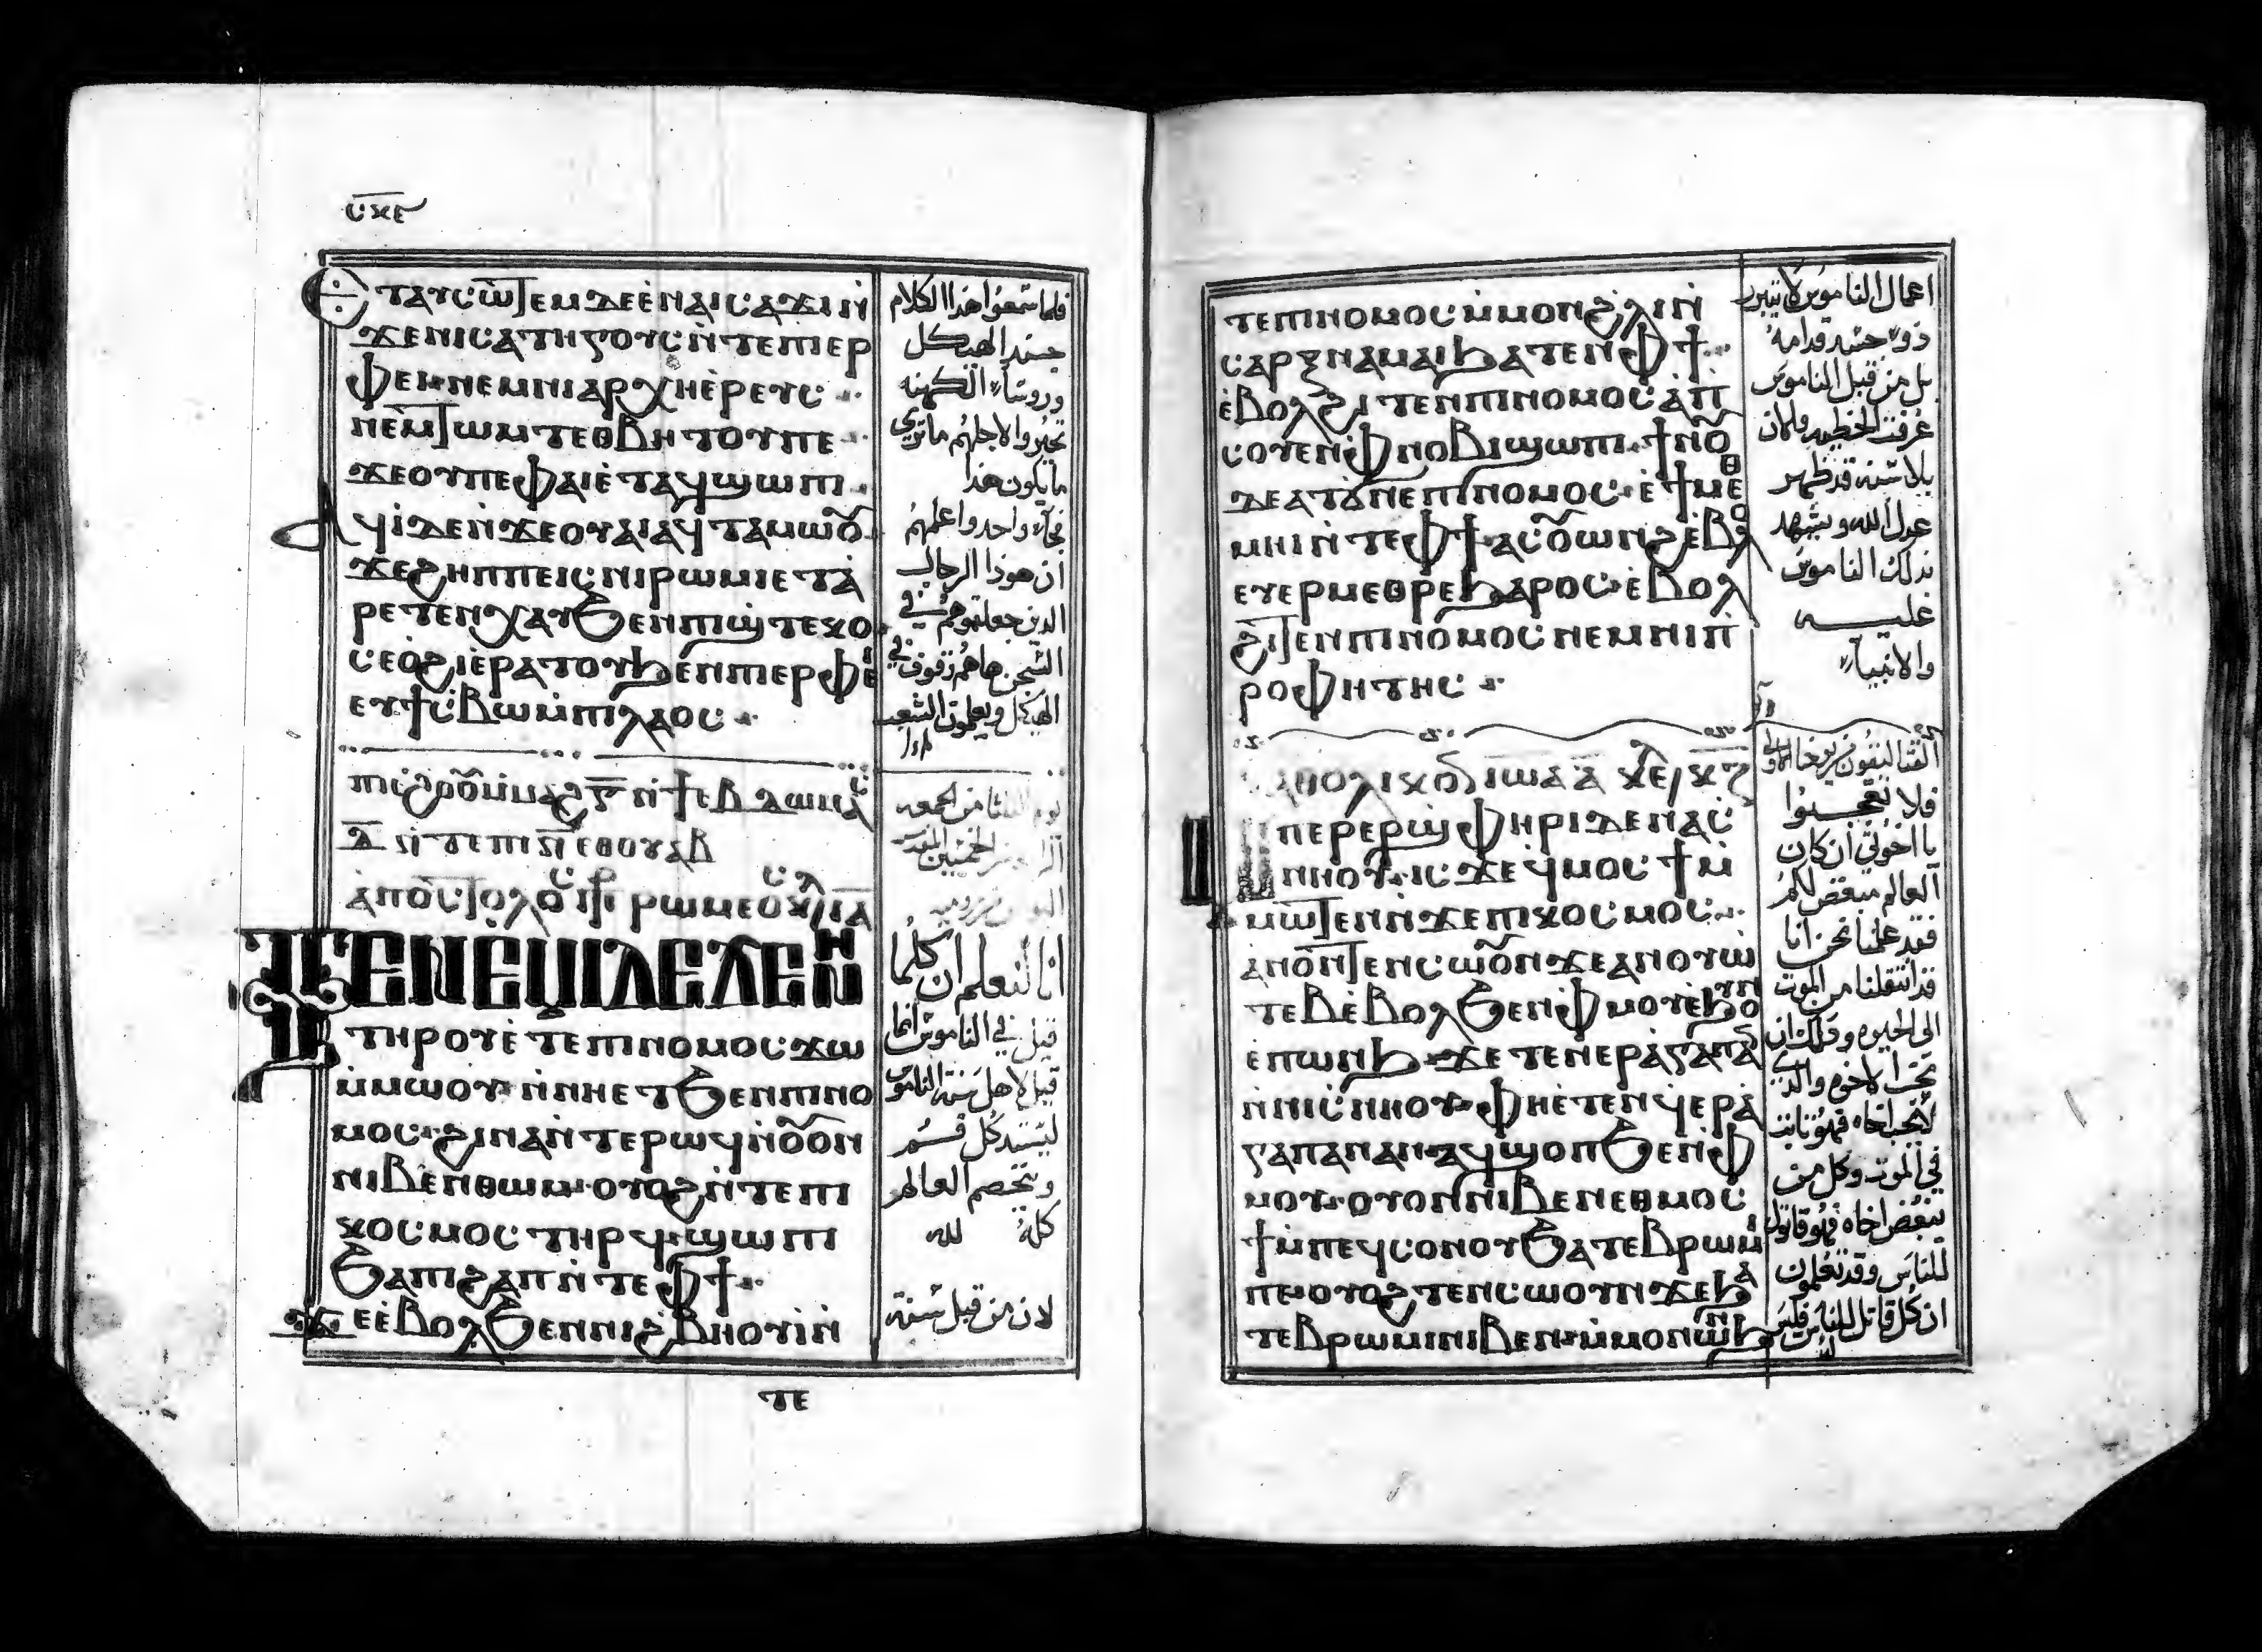 ⲥⲕⲉ
Ⲉⲧⲁⲩⲥⲱⲧⲉⲙ ⲇⲉ ⲉ̀ⲛⲁⲓⲥⲁϫⲓ ⲛ̀
ϫⲉⲛⲓⲥⲁⲧⲏⲅⲟⲩⲥ ⲛ̀ⲧⲉⲡⲓⲉⲣ
ⲫⲉⲓ ⲛⲉⲙⲛⲓⲁⲣⲭⲏⲉ̀ⲣⲉⲩⲥ
ⲛⲉⲙϯⲱⲙⲧ ⲉⲑⲃⲏⲧⲟⲩ ⲡⲉ
ϫⲉⲟⲩⲡⲉⲫⲁⲓ ⲉ̀ⲧⲁϥϣⲱⲡⲓ
Ⲁϥⲓ̀ ⲇⲉ ⲛ̀ϫⲉⲟⲩⲁⲓ ⲁϥⲧⲁⲙⲱⲟⲩ
ϫⲉϩⲏⲡⲡⲉⲓⲥ ⲛⲓⲣⲱⲙⲓ ⲉⲧⲁ̀
ⲣⲉⲧⲉⲛⲭⲁⲩ ϧⲉⲛⲡⲓϣ̀ⲧⲉⲕⲟ
ⲥⲉⲟ̀ϩⲓ ⲉ̀ⲣⲁⲧⲟⲩ ϧⲉⲛⲡⲓⲉⲣⲫⲉⲓ
ⲉⲩϯⲥ̀ⲃⲱ ⲙ̀ⲡⲓⲗⲁⲟⲥ
فلما سمعوا هذا الكلام
جند الهيكل
وروسآء الكهنه
تحيروا لاجلهم ماتري
ما يكون هذا
فجآء واحد واعلمهم
ان هوذا الرجال
الذين جعلتموهم في
السجن هاهم وقوف في
الهيكل ويعلمون الشعب
ⲡⲓⲉ̀ϩⲟⲟⲩ ⲙ̀ⲙⲁϩ ⲅ̅ ⲛ̀ϯⲉⲃⲇⲱⲙⲁⲥ
ⲇ̅ ⲛ̀ⲧⲉⲡⲓⲛ̅ ⲉⲑⲟⲩⲁⲃ
ⲁ̀ⲡⲟⲥⲧⲟⲗⲟⲥ ⲡⲣ ⲣⲱⲙⲉⲟⲥ
ⲦⲈⲚⲈⲘⲒ ⲆⲈ ϪⲈ ⲚⲎ
ⲧⲏⲣⲟⲩ ⲉ̀ⲧⲉⲡⲓⲛⲟⲙⲟⲥ ϫⲱ
ⲙ̀ⲙⲱⲟⲩ ⲛ̀ⲛⲏⲉⲧϧⲉⲛⲡⲓⲛⲟ
ⲙⲟⲥ ϩⲓⲛⲁ ⲛ̀ⲧⲉⲣⲱϥ ⲛ̀ⲟⲩⲟⲛ
ⲛⲓⲃⲉⲛ ⲑⲱⲙ ⲟⲩⲟϩ ⲛ̀ⲧⲉⲡⲓ
ⲕⲟⲥⲙⲟⲥ ⲧⲏⲣϥ ϣⲱⲡⲓ
ϧⲁⲡⲓϩⲁⲡ ⲛ̀ⲧⲉⲫϯ
ϫⲉ ⲉ̀ⲃⲟⲗϧⲉⲛⲛⲓϩ̀ⲃⲏⲟⲩⲓ̀ ⲛ̀
ⲧⲉ
انا لنعلم ان كلما
قيل في الناموس انما
قيل لاهل سنة الناموس
ليستد كل فم
ويخصم العالم
كله لله
لان من قبل سنة
ⲧⲉⲡⲓⲛⲟⲙⲟⲥ ⲙ̀ⲙⲟⲛϩ̀ⲗⲓ ⲛ̀
ⲥⲁⲣⲝ ⲛⲁⲙⲁⲓ ϧⲁⲧⲉⲛⲫϯ
ⲉ̀ⲃⲟⲗϩⲓⲧⲉⲛⲡⲓⲛⲟⲙⲟⲥ ⲁⲡ
ⲥⲟⲩⲉⲛⲫ̀ⲛⲟⲃⲓ ϣⲱⲡⲓ ϯⲛⲟⲩ
ⲇⲉ ⲁⲧϭⲛⲉⲡⲓⲛⲟⲙⲟⲥ ⲉ̀ϯⲙⲉⲑ
ⲙⲏⲓ ⲛ̀ⲧⲉⲫϯ ⲁⲥⲟⲩⲱⲛϩ ⲉ̀ⲃⲟⲗ
ⲉⲩⲉⲣⲙⲉⲑⲣⲉ ϧⲁⲣⲟⲥ ⲉ̀ⲃⲟⲗ
ϩⲓⲧⲉⲛⲡⲓⲛⲟⲙⲟⲥ ⲛⲉⲙⲛⲓⲡ̀
ⲣⲟⲫⲏⲧⲏⲥ
اعمال الناموس لا يتبرر
ذو جسد قدامه
بل من قبل الناموس
عرفت الخطيه والان
بلا سنه قد ظهر
عدل الله ويشهد
بذلك الناموس
عليه
والانبيآء
ⲕⲁⲑⲟⲗⲓⲕⲟⲛ ⲓⲱⲁ ⲁ̅
ⲙ̀ⲡⲉⲣⲉⲣϣ̀ⲫⲏⲣⲓ ⲇⲉ ⲛⲁⲥ̀
ⲛⲏⲟⲩ ⲓⲥϫⲉ ϥⲙⲟⲥϯ ⲙ̀
ⲙⲱⲧⲉⲛ ⲛ̀ϫⲉⲡⲓⲕⲟⲥⲙⲟⲥ
ⲁⲛⲟⲛ ⲧⲉⲛⲥⲱⲟⲩⲛ ϫⲉⲁⲛⲟⲩⲱ̀
ⲧⲉⲃ ⲉ̀ⲃⲟⲗϧⲉⲛⲫ̀ⲙⲟⲩ ⲉ̀ϧⲟⲩⲛ
ⲉ̀ⲡⲱⲛϧ ϫⲉ ⲧⲉⲛⲉⲣⲁ̀ⲅⲁⲡⲁⲛ
ⲛ̀ⲛⲓⲥ̀ⲛⲏⲟⲩ ⲫⲏⲉ̀ⲧⲉⲛϥⲉⲣⲁ̀
ⲅⲁⲡⲁⲛ ⲁⲛ ⲁϥϣⲟⲡ ϧⲉⲛⲫ̀
ⲙⲟⲩ ⲟⲩⲟⲛ ⲛⲓⲃⲉⲛ ⲉⲑⲙⲟⲥ
ϯ ⲙ̀ⲡⲉϥⲥⲟⲛ ⲟⲩϧⲁⲧⲉⲃⲣⲱⲙⲓ
ⲡⲉ ⲟⲩⲟϩ ⲧⲉⲛⲥⲱⲟⲩⲛ ϫⲉϧⲁ
ⲧⲉⲃⲣⲱⲙⲓ ⲛⲓⲃⲉⲛ ⲙ̀ⲙⲟⲛ ⲱⲛϧ
فلا تعجبوا
يا اخوتي ان كان
العالم مبغض لكم
فقد علمنا نحن انا
قد انتقلنا من الموت
الى الحيوه وذلك ان
نحب الاخوه والذي
لا يحب اخاه فهو ثابت
في الموت وكل من
يبغض اخاه فهو قاتل
للناس وقد تعلمون
ان كل قاتل للناس فليس